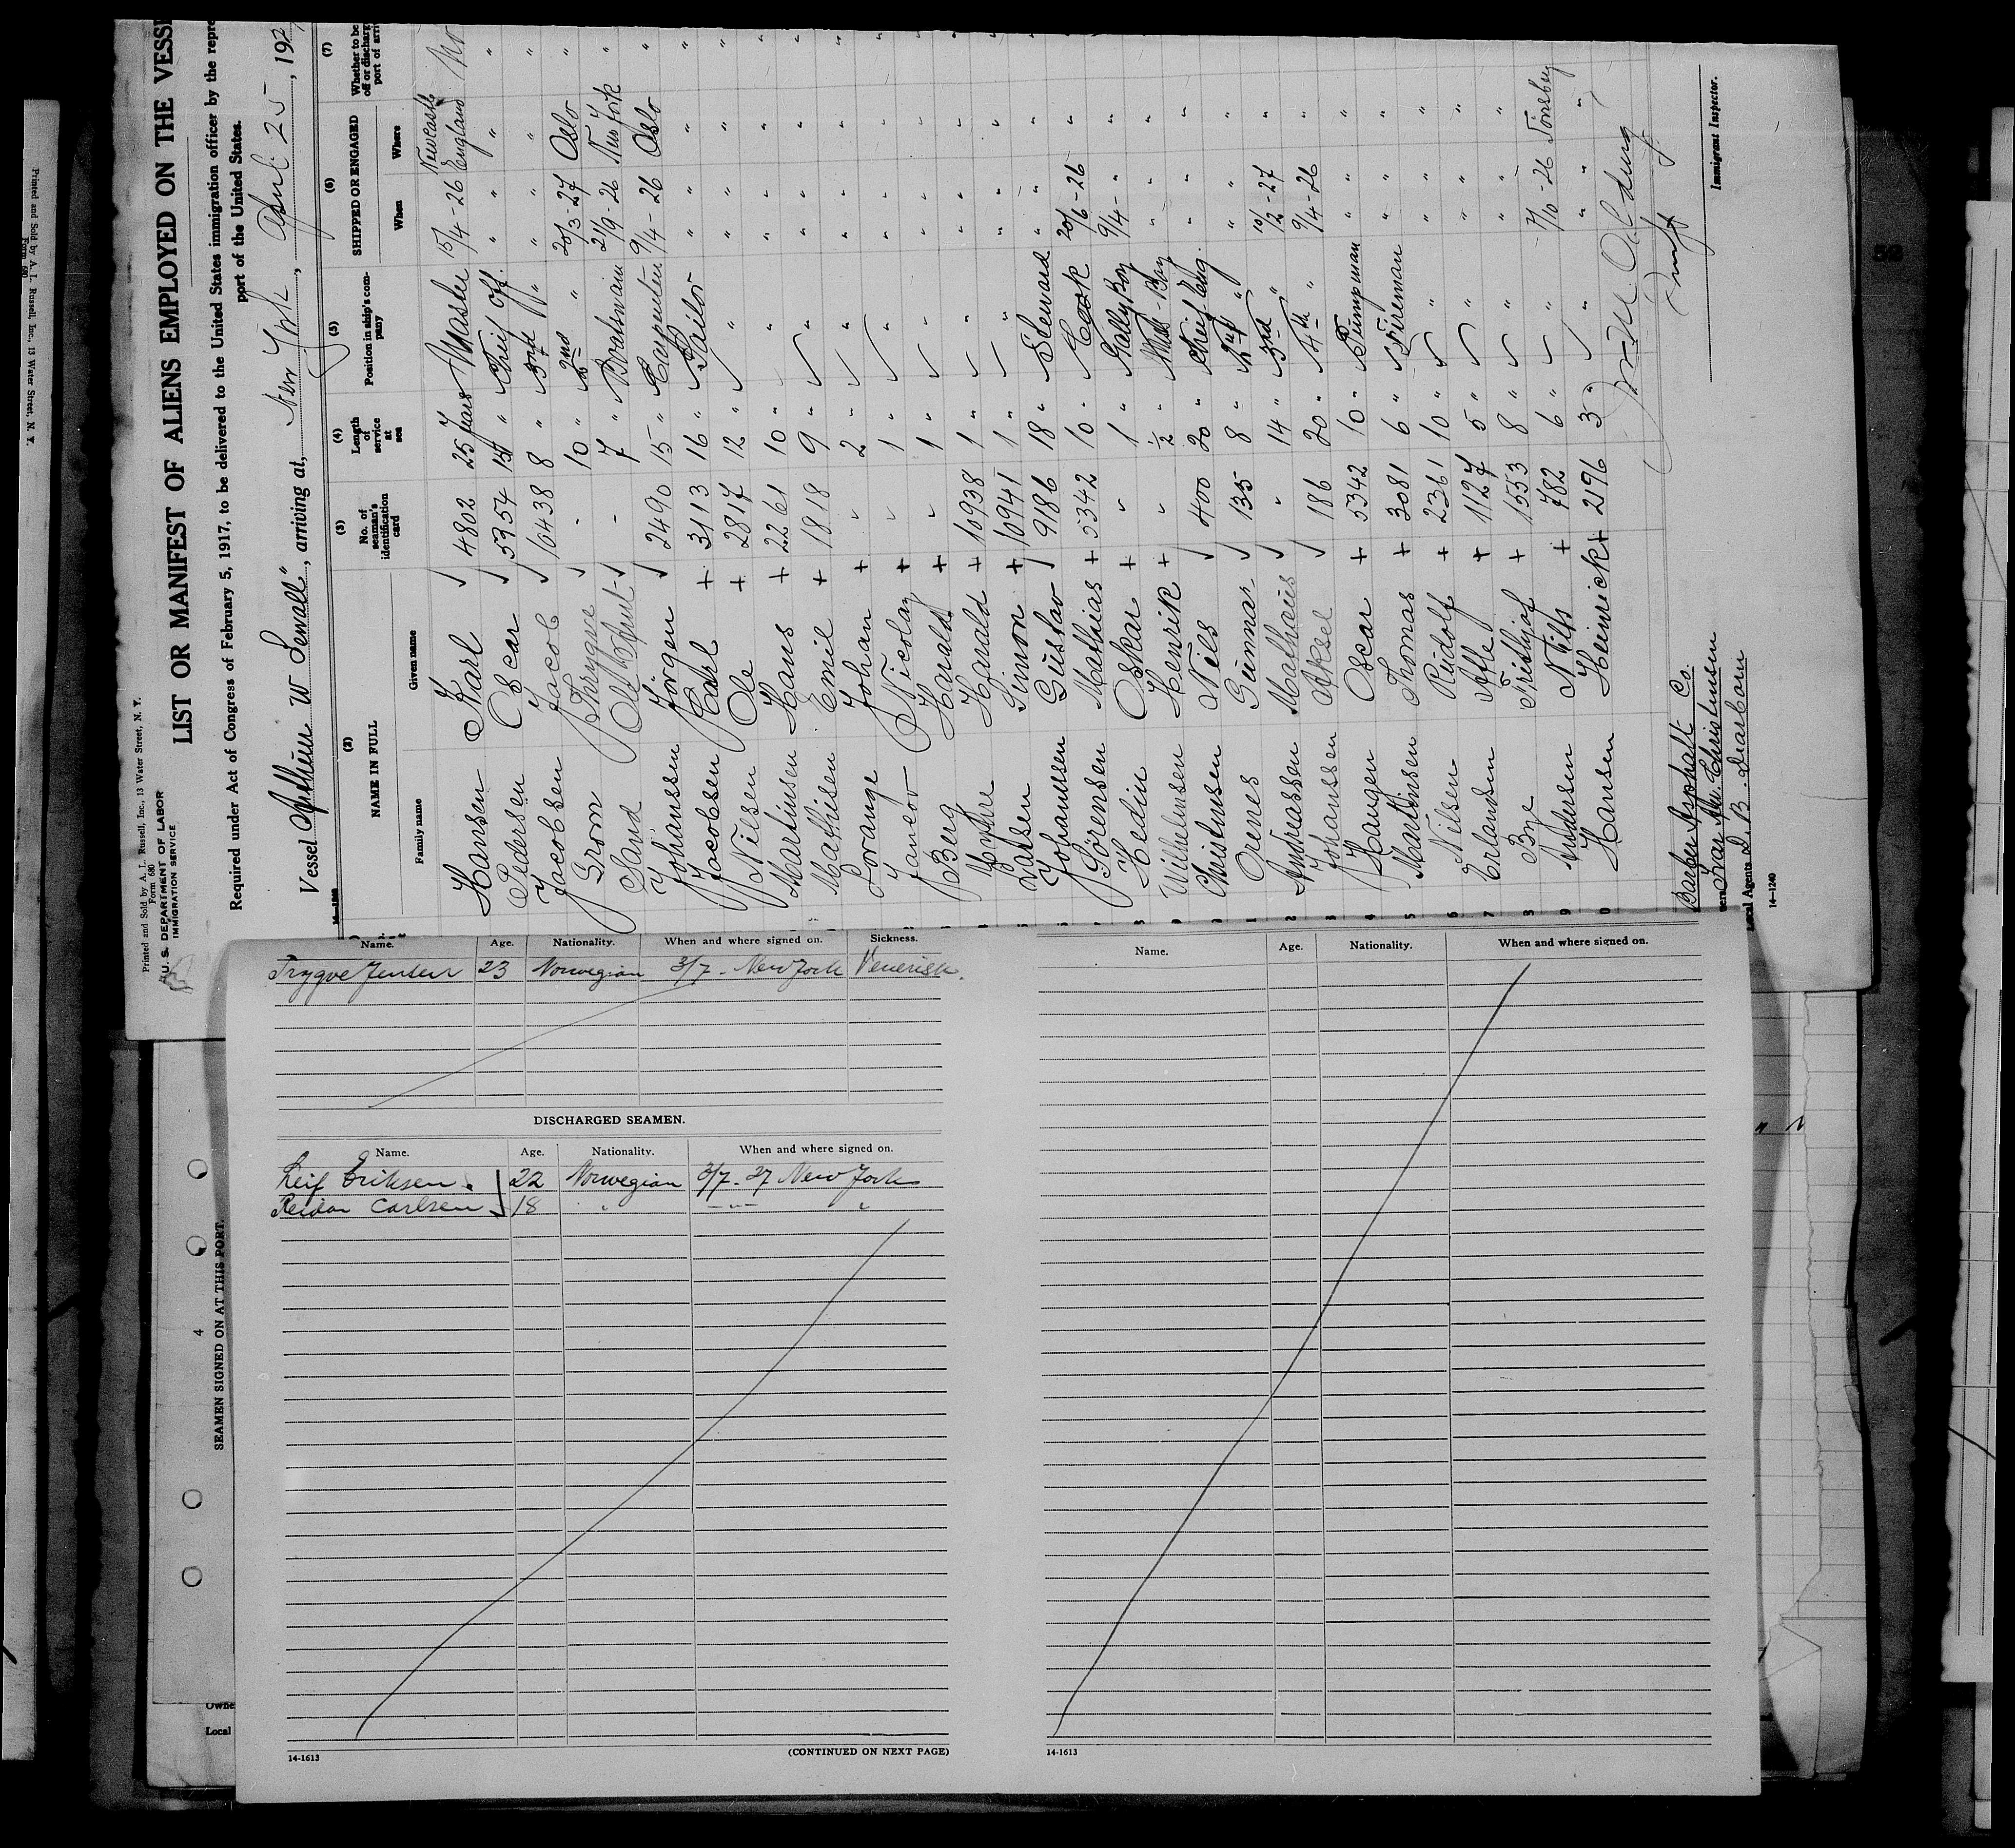 Printed and Sold by A. L. Russell, Inc., 13 Water Street, N. Y.
Form 680
Printed and Sold by A. L. Russell, Inc., 13 Water Street, N. Y.
Form 680
U. S. DEPARTMENT OF LABOR
IMMIGRATION SERVICE
LIST OR MANIFEST OF ALIENS EMPLOYED ON THE VESS
Required under Act of Congress of February 5, 1917, to be delivered to the United States immigration officer by the repr
port of the United States.
Vessel Arthur W Sewall", arriving at, New York, April 25, 192
(2) (3) (4) (5) (6) (7)
NAME IN FULL No. of seaman's identification card Length of service at sea Position in ship's company SHIPPED OR ENGAGED Whether to be
Family name Given name When Where
Hansen Karl √ 4802 25 years Master 15/4-26 Newcastle England No
Pedersen Oscar √ 5954 15 " Cheif Off. " " "
Jacobsen Jacob √ 10438 8 " " " "
Grom Thrygve √ - 10 " 2nd " 20/3-27 Oslo "
Sand √ - 7 " Boatswain 21/9-26 New York "
Johanssen Jörgen √ 2490 15 " Carpenter 9/4-26 Oslo "
Jacobsen Carl + 3113 16 " Sailor " " "
Nilsen Ole + 2817 12 " " " " "
Martinsen Hans + 2261 10 " " " " "
Mathisen Emil + 1818 9 " " " " "
Lorange Johan + " 2 " " " " "
Nicolay + " 1 " " " " "
Berg Harald + " 1 " " " " "
Myhre Harald + 10938 1 " " " " "
Larsen Simon + 10941 1 " " " " "
Johannessen Gustav √ 9186 18 " Steward " " "
Sörensen Mathias + 5342 10 " Cook 20/6-26 " "
Hedin Oskar + " 1 " Gally Boy 9/4- " " "
Wilhelmsen Henrik + " ½ " Boy " " "
Christensen Nils √ 400 20 " Cheif Eng. " " "
Orenes Gunnar √ 135 8 " 2nd " " " "
Andreassen Mathæus √ " 14 " 3rd " 10/2-27 " "
Johanssen Aksel √ 186 20 " 4th " 9/4-26 " "
Haugen Oscar + 5342 10 " Pumpman " " "
Martinsen Thomas + 3081 6 " Fireman " " "
Nilsen Rudolf + 2361 10 " " " " "
Erlandsen Atle + 1127 5 " " " " "
Bye Frithjof + 1553 8 " " " " "
Andersen Nils + 782 6 " " 7/10-26 Tönsberg
Hansen Heinrick + 2196 3 " " " "
Immigrant Inspector.
Barber Asphalt Co.
Ivar An. Christensen
Local Agents D. B. Dearborn
14-1240
Name. Age. Nationality. When and where signed on. Sickness.
Trygve Jensen 23 Norwegian 3/7- New York Venerisk.
DISCHARGED SEAMEN.
Name. Age. Nationality. When and where signed on.
Leif Eriksen. 22 Norwegian 3/7-27 New York
Reidar Carlsen 18 " -"- "
14-1613
(CONTINUED ON NEXT PAGE)
Name. Age. Nationality. When and where signed on.
14-1613
4
SEAMEN SIGNED ON AT THIS PORT.
Owne
Local
52